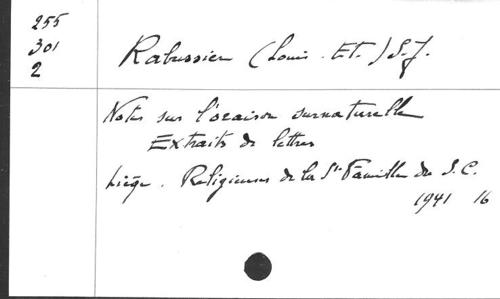 255
301
2
Rabussier (Louis. Et.) S.J.
Notes sur l'oraison surnaturelle
Extraits de lettres
Liège. Religieuses de la Ste Famille du S. C.
1941 16